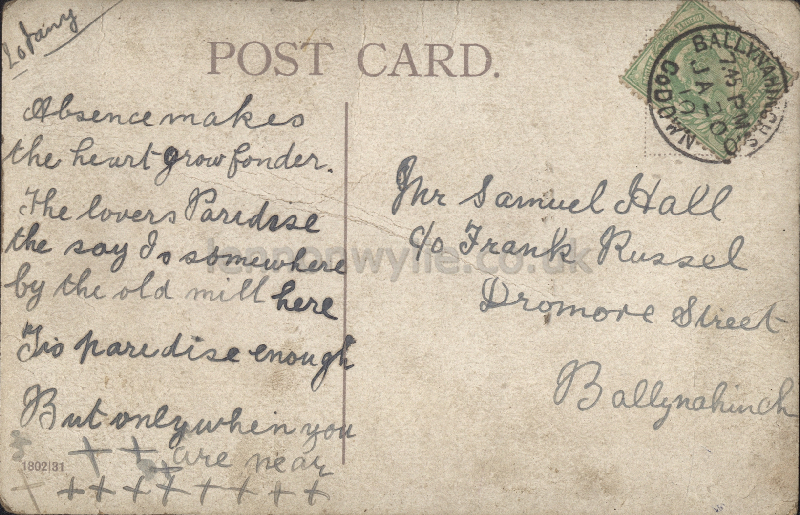 20 Jany
POST CARD.
BALLYNAHINCH S.O.
7 45 PM
JA 20
CO DOWN
Absence makes
the heart grow fonder.
The lovers Paridise
the say Is somewhere
by the old mill here
Tis paridise enough
But only when you
are near
1802|31
Mr Samuel Hall
c/o Frank Russel
Dromore Street
Ballynahinch
lennonwylie.co.uk